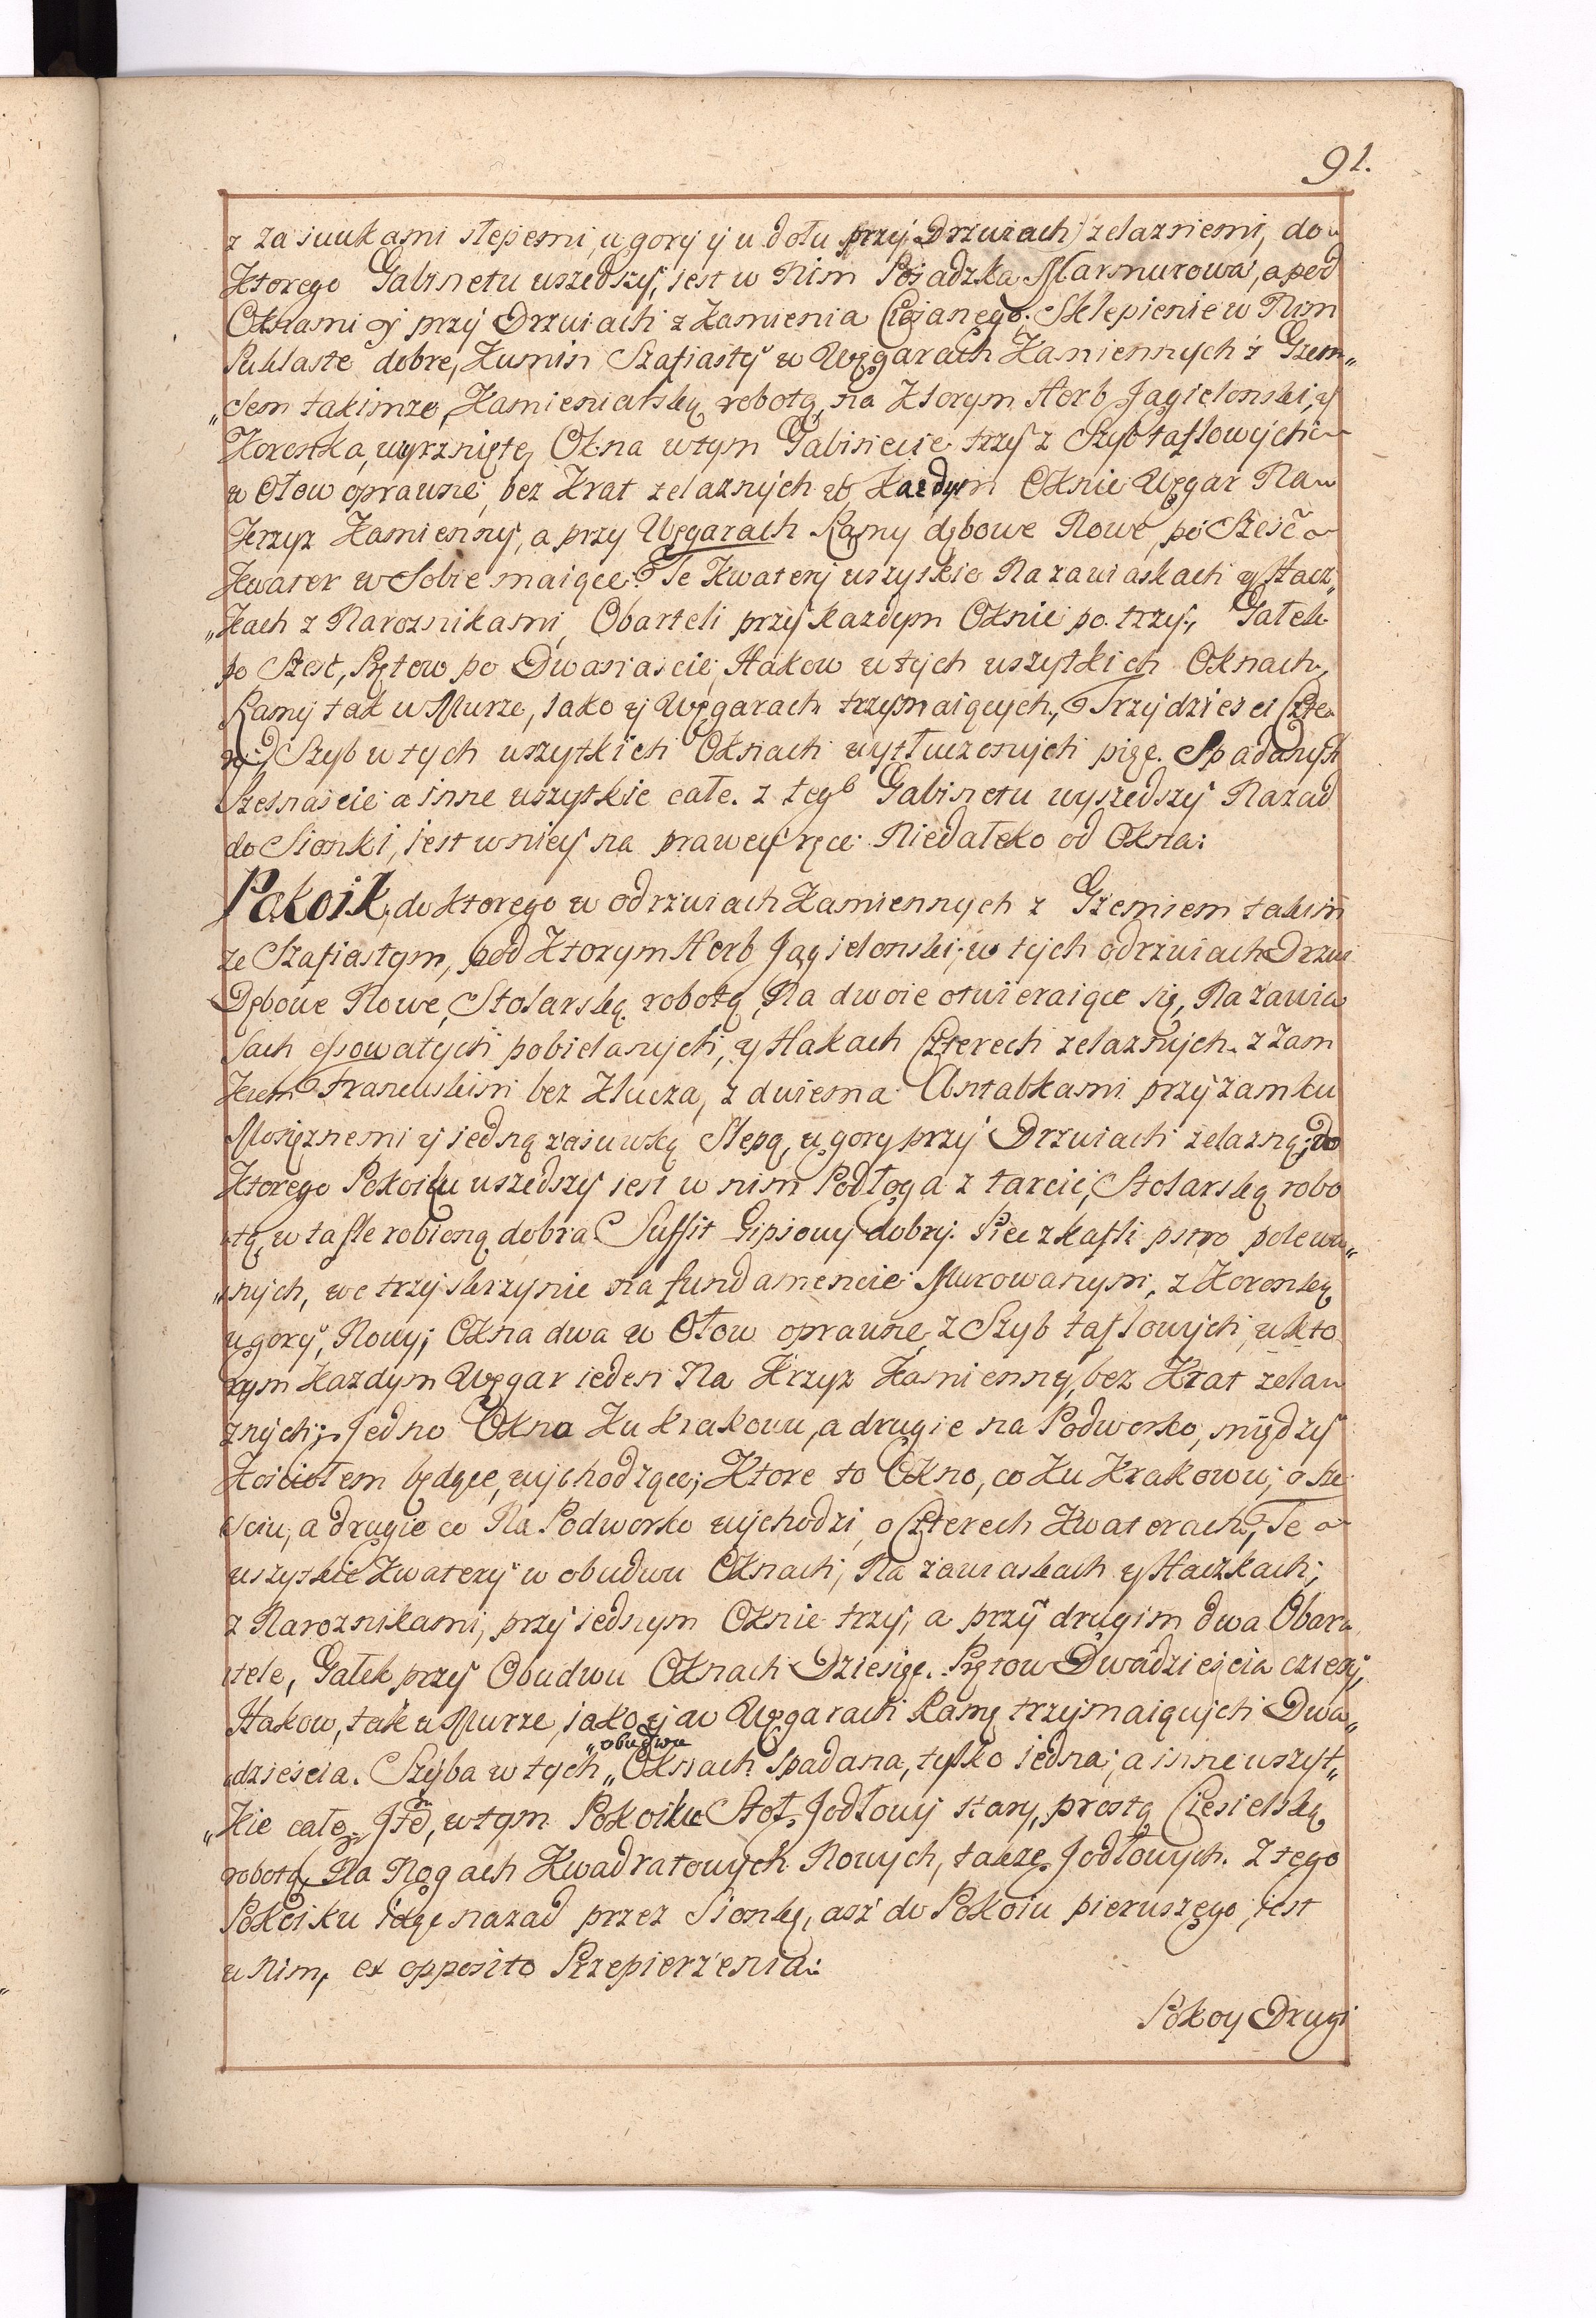 91.
z zasuukami slepemi, u gory y u dołu przy Drzwiach zelaznemi, do
Ktorego Gabinetu wszedszy, jest w Nim Posadzka Marmurowa, a pod
Oknami y przy Drzwiach z Kamienia Ciosanego. Sklepienie w Nim
Puklaste dobre, Kumin Szafiasty w Węgarach Kamiennych z Gzem„
„sem takimze, Kamieniatską robotą, na Ktorym Herb Jagielonski, y
Koronka, wyrznięte, Okna w tym Gabinecie trzy z Szyb taflowych
w Ołow oprawne, bez Krat zelaznych w Kazdym Oknie Węgar Na
Krzyz Kamienny, a przy Węgarach Ramy dębowe Nowe, po Sześć
Kwater w Sobie maiące. Te Kwatery wszyskie Na zawiaskach y Hacz„
„kach z Naroznikami, Obarteli przy kazdym Oknie po trzy, Gałek
po Szesc, Prętow po Dwanascie, Hakow w tych wszytkich Oknach,
Ramy tak w Murze, iako y Węgarach trzymaiących, Trzydziesci Czte„
ry. Szyb w tych wszytkich Oknach wytłuczonych pięc. Spadanych
Szesnascie a inne wszytkie całe. z tego Gabinetu wyszedszy Nazad
do Sionki, iest w niey na prawey ręce Niedaleko od Okna:
Pokoik, do ktorego w odrzwiach Kamiennych z Gzemsem takim
ze Szafiastym, pod Ktorym Herb Jagielonski; w tych odrzwiach Drzwi
Dębowe Nowe, Stolarską robotą, Na dwoie otwieraiące się, Na zawia
sach essowatych pobielanych, y Hakach Czterech zelaznych. z Zam
kiem Francuskim bez Klucza, z dwiema Antabkami przy zamku
Mosięznemi y iedną zasuwką Slepą, u gory przy Drzwiach zelazną; do
Ktorego Pokoiku wszedszy iest w nim Podłoga z tarcic, Stolarską robo
„tą, w tafle robioną dobra. Suffit Gipsowy dobry. Piec z kafli pstro polewa„
„nych, we trzy skrzynie na fundamencie Murowanym, z Koronką
u gory, Nowy; Okna dwa w Ołow oprawne, z Szyb taflowych, w kto
rym Kazdym Węgar ieden Na Krzyz Kamienny, bez Krat zela
znych; Jedno Okno Ku Krakowu, a drugie na Podworko, między
Kościołem będące, wychodzące; Ktore to Okno, co Ku Krakowu, o sze
sciu, a drugie co Na Podworko wychodzi, o Czterech Kwaterach, Te
wszyskie Kwatery w obudwu Oknach, Na zawiaskach y Haczkach,
z Naroznikami, przy iednym Oknie trzy, a przy drugim dwa Obar„
„tele, Gałek przy Obudwu Oknach Dziesięc. Prętow Dwadziescia cztery,
Hakow, tak w Murze, iako y w Węgarach Ramę trzymaiących Dwa„
„dziescia. Szyba w tych „obudwu Oknach spadana, tylko iedna, a inne wszyt„
„kie całe. Itē, w tym Pokoiku Stoł Jodłowy stary, prostą Ciesielską
robotą, Na Nogach Kwadratowych Nowych, takze Jodłowych. Z tego
Pokoiku idąc nazad przez Sionkę, asz do Pokoiu pierwszego, iest
w Nim, ex opposito Przepierzenia:
Pokoy Drugi